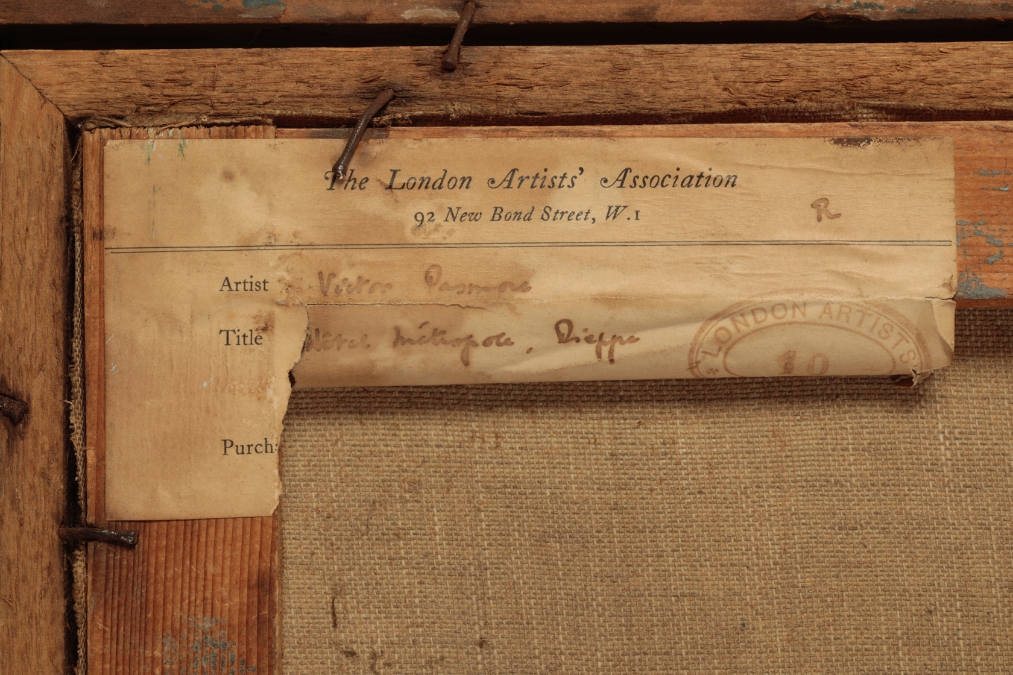 The London Artists' Association
92 New Bond Street, W.1
R
Artist Victor Pasmore
Title Hotel Métropole, Dieppe
LONDON ARTISTS
10
Purch